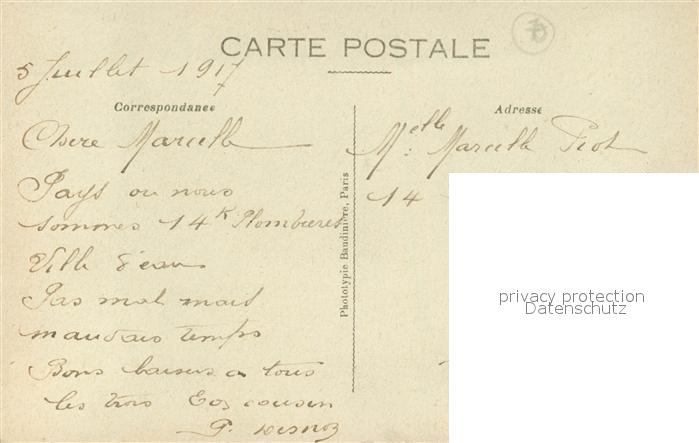 CARTE POSTALE
5 Juillet 1917
Correspondance
Chère Marcelle
Pays ou nous
sommes 14 k Plombieres
Ville d'eaux
Pas mal mais
mauvais temps
Bons baisers a tous
les trois cousin
P.
Photolypie Baudinière, Paris
Adresse
Melle Marcelle Piot
14
privacy protection
Datenschutz